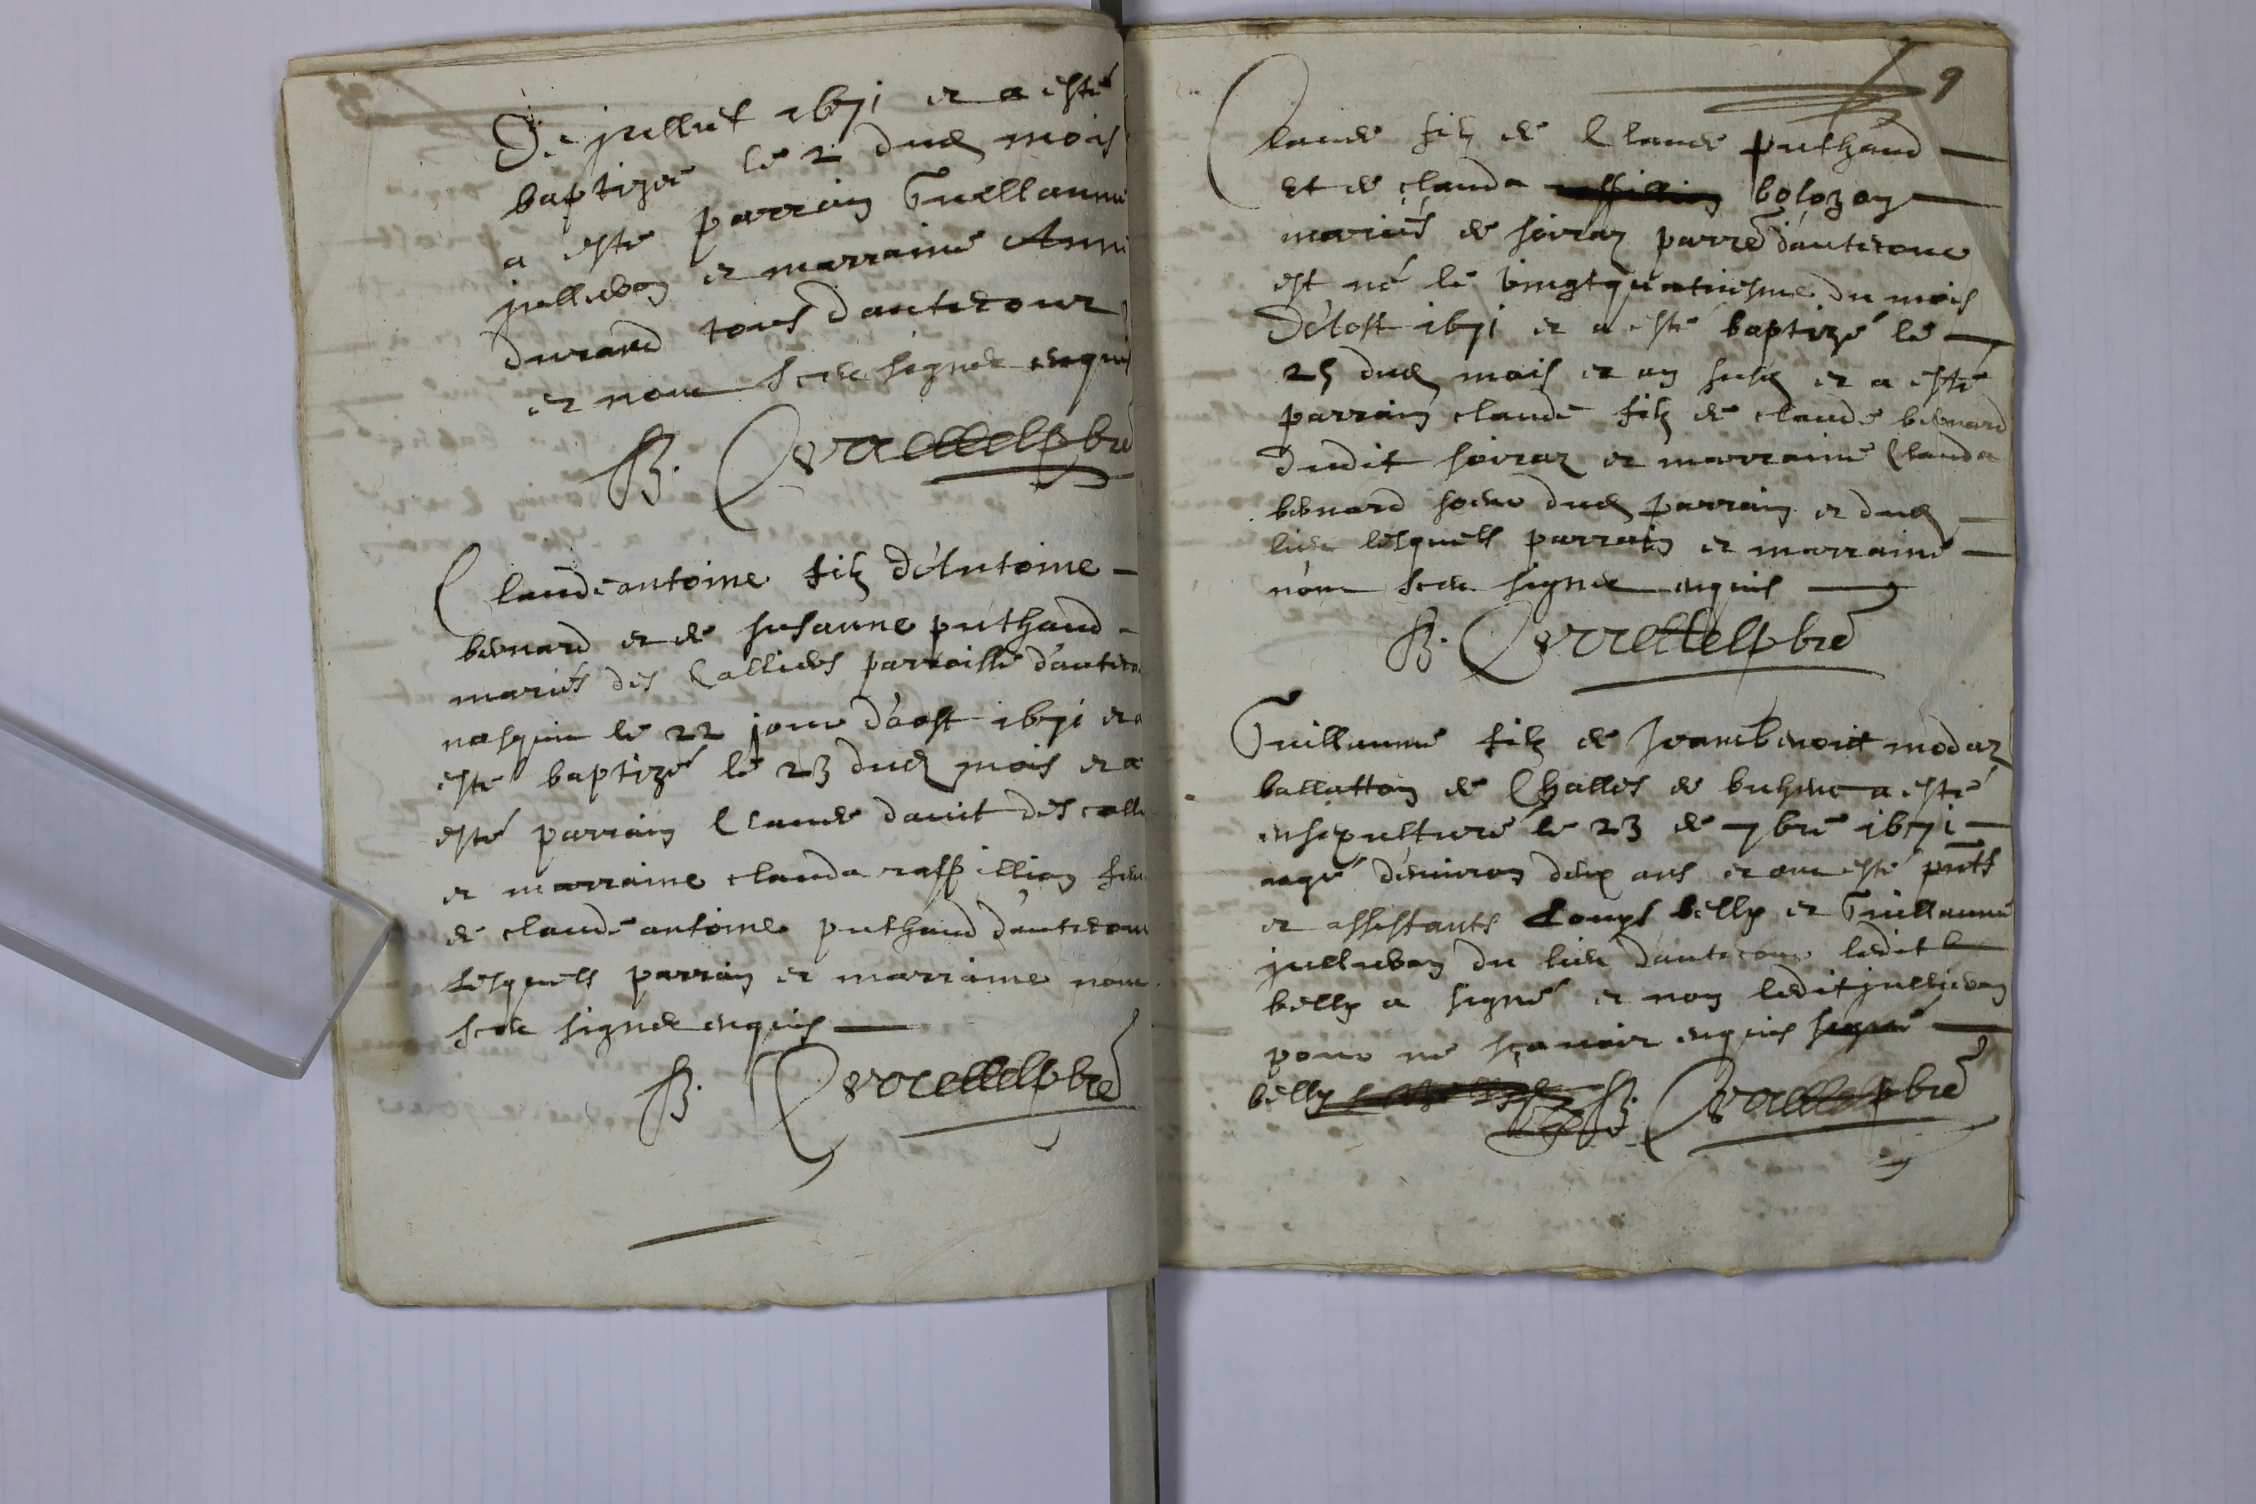 De juillet 1671 et a esté
baptizée le 2 dud mois
a esté parrain Guillaume
jullievon et marraine Anne
durand tous dautecour
et nont sceu signer enquis
B. pbre
Claude antoine filz d'Antoine
benard et de susanne puthaud
mariés des Calliers parroisse d'auteco
nasquit le 22 jour d'aost 1671 et a
esté baptizé le 23 dud mois et a
esté parrain Claude dauit des calli
et marraine clauda raffillion fem
de claude antoine puthaud d'autecour
lesquels parrain et marraine nont
sceu signer enquis
B. pbre
9
Claude filz de Claude puthaud
et de clauda bolozon
mariés de soiraz parre d'autecour
est né le vingtquatriesme du mois
D'aost 1671 et a esté baptizé le
25 dud mois et an susd et a esté
parrain claude filz de claude benard
dudit soiraz et marraine Clauda
benard soeur dud parrain et dud
lieu lesquels parrain et marraine
n'ont sceu signer enquis
B. pbre
Guillaume filz de Jeanbenoict modaz
ballatton de Challes de a esté
ensepulturé le 23 de 7bre 1671
aagé d'environ deux ans et ont esté pnts
et assistants Louys belly et Guillaume
jullievon du lieu dautecour ledit
belly a signé et non ledit jullievon
pour ne sçavoir enquis signé
belly B. pbre